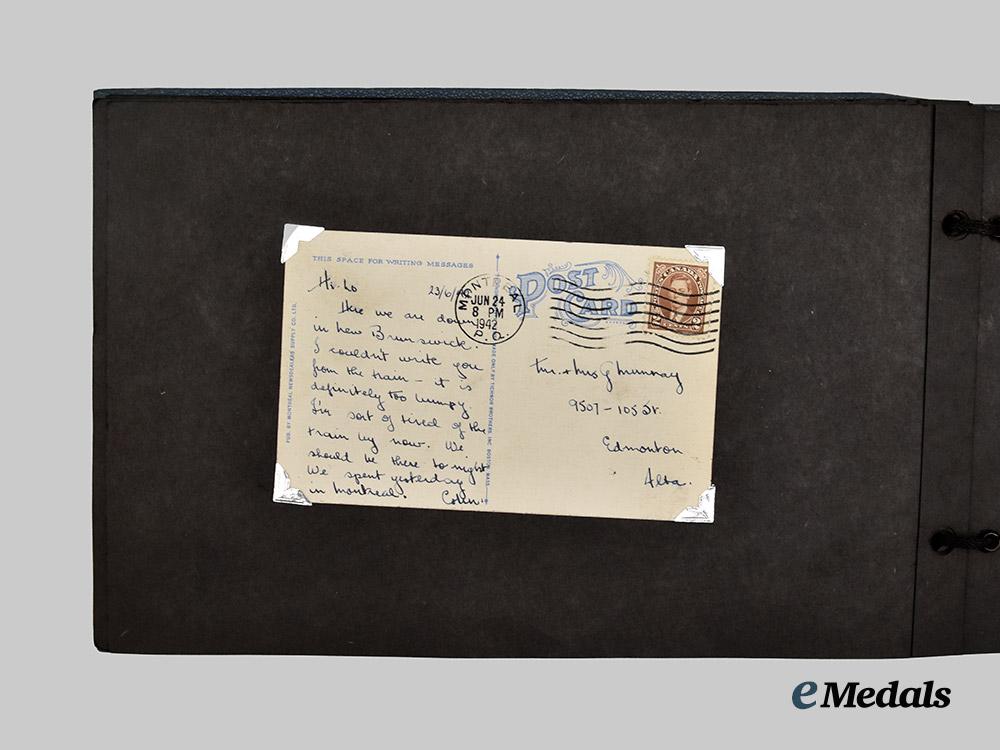 THIS SPACE FOR WRITING MESSAGES
POST CARD
CANADA
MONTREAL
JUN 24
8 PM
1942
P.Q.
Hi-Lo
23/6/
Here we are down
in New Brunswick.
I couldn't write you
from the train - it is
definitely too bumpy.
I'm sort of tired of the
train by now. We
should be there to-night
We spent yesterday
in Montreal.
Colin.
Mr. + Mrs G Murray
9507 - 105 St.
Edmonton
Alta.
PUB. BY MONTREAL NEWSDEALERS SUPPLY CO. LTD.
MADE ONLY BY TICHNOR BROTHERS, INC. BOSTON, MASS.
eMedals